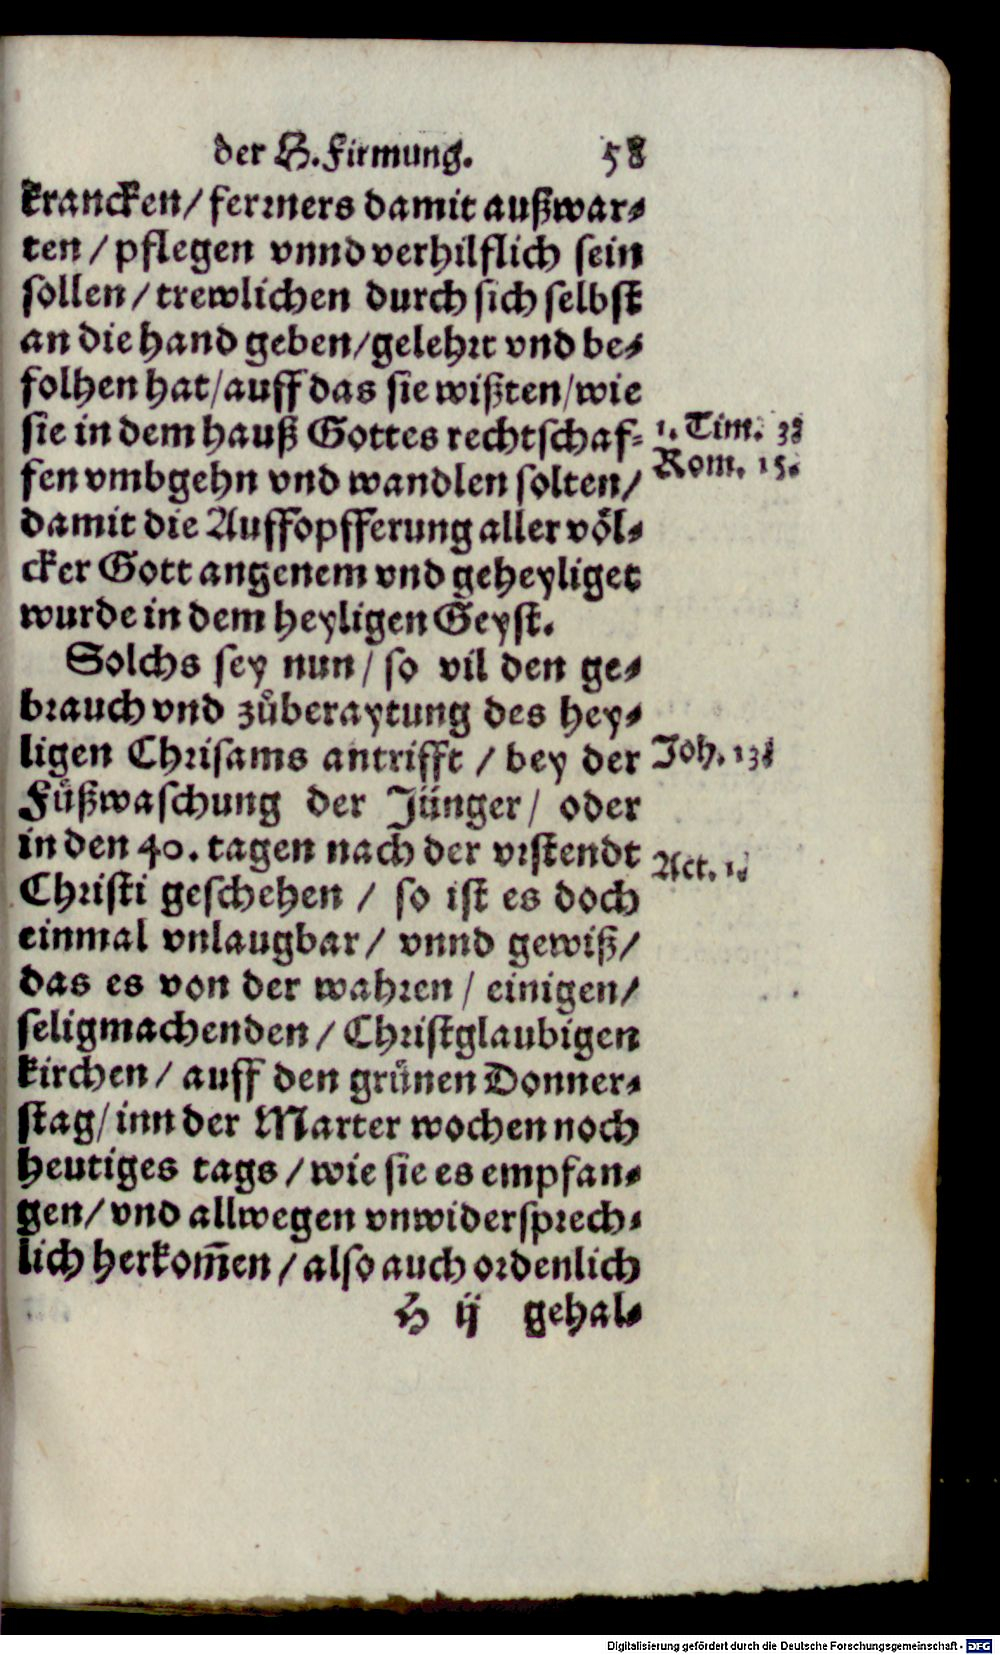 der H. Firmung. 58
krancken / ferrners damit außwar-
ten / pflegen vnnd verhilflich sein
sollen / trewlichen durch sich selbst
an die hand geben / gelehrt vnd be-
folhen hat / auff das sie wißten / wie
sie in dem hauß Gottes rechtschaf-
1. Tim. 3.
fen vmbgehn vnd wandlen solten /
Rom. 15.
damit die Auffopfferung aller völ-
cker Gott angenem vnd geheyliget
wurde in dem heyligen Geyst.
Solchs sey nun / so vil den ge-
brauch vnd zůberaytung des hey-
ligen Chrisams antrifft / bey der
Joh. 13.
Fůßwaschung der Jünger / oder
in den 40. tagen nach der vrstendt
Act. 1.
Christi geschehen / so ist es doch
einmal vnlaugbar / vnnd gewiß /
das es von der wahren / einigen /
seligmachenden / Christglaubigen
kirchen / auff den grůnen Donner-
stag / inn der Marter wochen noch
heutiges tags / wie sie es empfan-
gen / vnd allwegen vnwidersprech-
lich herkom̃en / also auch ordenlich
H ij gehal-
Digitalisierung gefördert durch die Deutsche Forschungsgemeinschaft - DFG